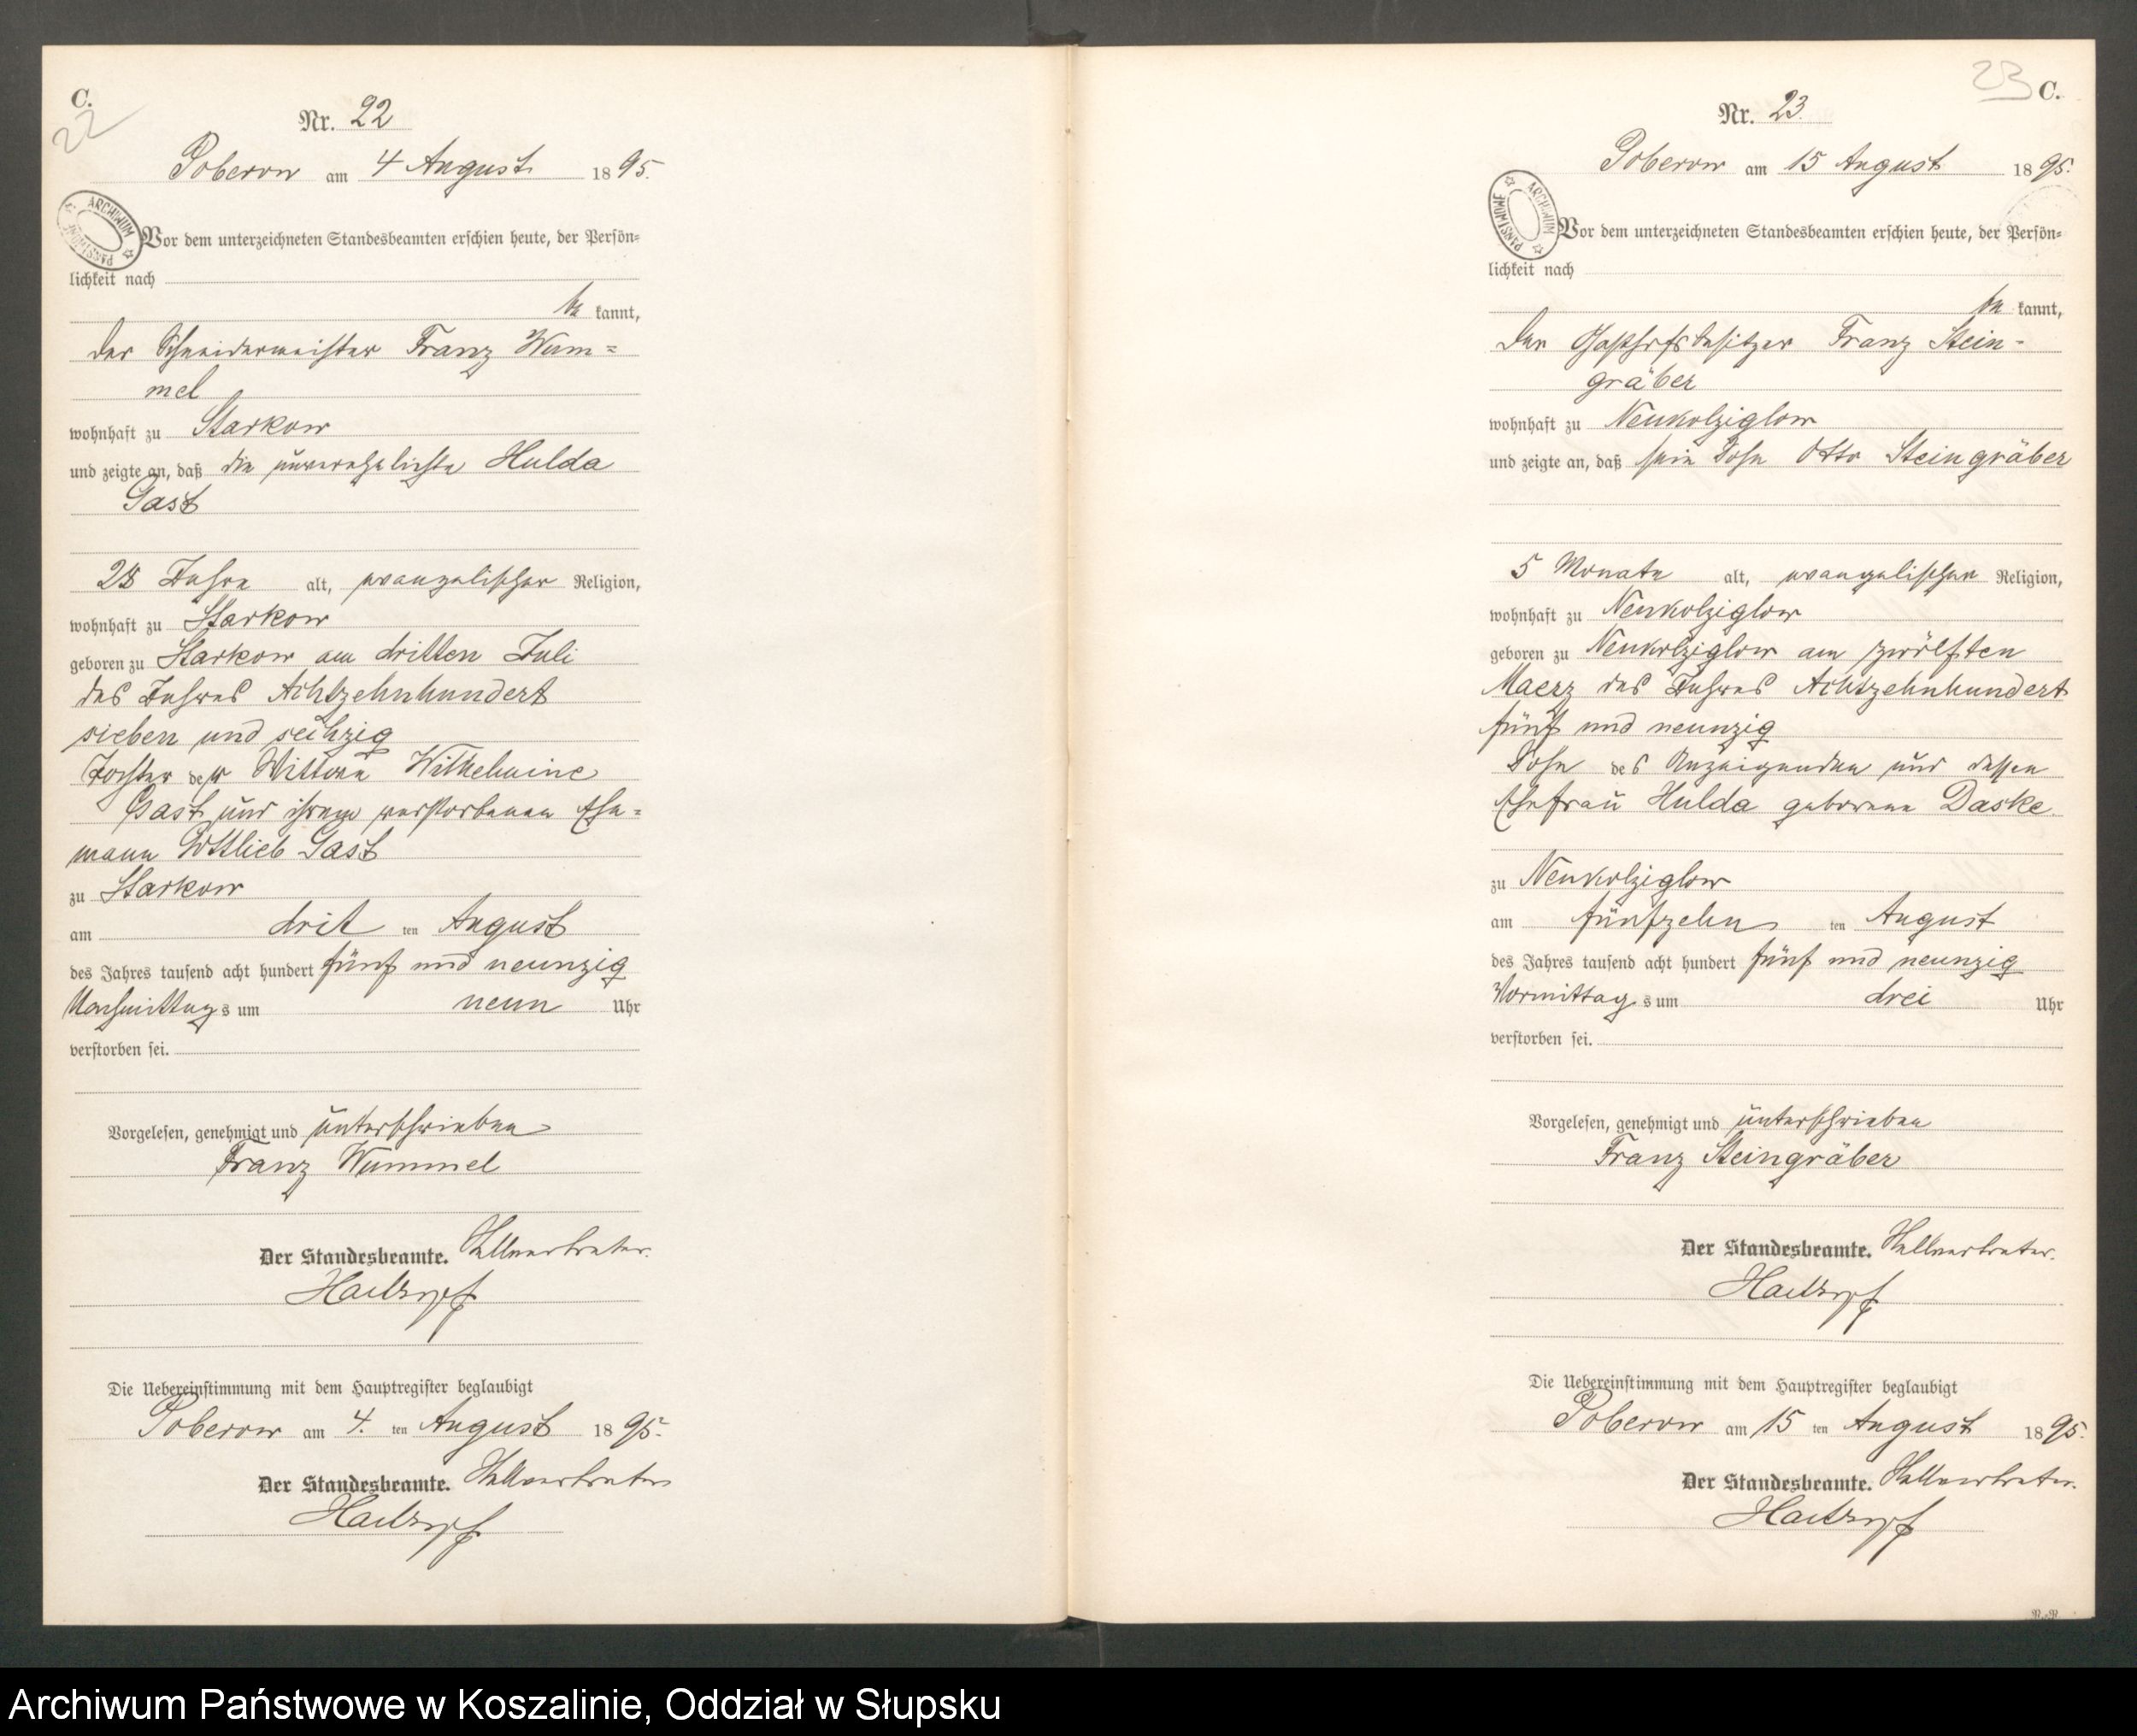 C.
22
Nr. 22
Poberow am 4 August 1895.
ARCHIWUM PAŃSTWOWE
Vor dem unterzeichneten Standesbeamten erschien heute, der Persön=
lichkeit nach
be kannt,
der Schneidermeister Franz Wum=
mel
wohnhaft zu Starkow
und zeigte an, daß die unverehelichte Hulda
Gast
28 Jahre alt, evangelischer Religion,
wohnhaft zu Starkow
geboren zu Starkow am dritten Juli
des Jahres Achtzehnhundert
sieben und sechzig
Tochter der Wittwe Wilhelmine
Gast und ihrem verstorbenen Ehe=
mann Gottlieb Gast
zu Starkow
am drit ten August
des Jahres tausend acht hundert fünf und neunzig
Nachmittags um neun Uhr
verstorben sei.
Vorgelesen, genehmigt und unterschrieben
Franz Wummel
Der Standesbeamte. Stellvertreter.
Die Uebereinstimmung mit dem Hauptregister beglaubigt
Poberow am 4. ten August 1895.
Der Standesbeamte. Stellvertreter
23 C.
Nr. 23.
Poberow am 15 August 1895.
ARCHIWUM PAŃSTWOWE
Vor dem unterzeichneten Standesbeamten erschien heute, der Persön=
lichkeit nach
be kannt,
der Gasthofsbesitzer Franz Stein-
gräber
wohnhaft zu Neukolziglow
und zeigte an, daß sein Sohn Otto Steingräber
5 Monate alt, evangelischer Religion,
wohnhaft zu Neukolziglow
geboren zu Neukolziglow am zwölften
Maerz des Jahres Achtzehnhundert
fünf und neunzig
Sohn des Anzeigenden und dessen
Ehefrau Hulda geborene Daske.
zu Neukolziglow
am fünfzehn ten August
des Jahres tausend acht hundert fünf und neunzig
Vormittags um drei Uhr
verstorben sei.
Vorgelesen, genehmigt und unterschrieben
Franz Steingräber
Der Standesbeamte. Stellvertreter.
Die Uebereinstimmung mit dem Hauptregister beglaubigt
Poberow am 15 ten August 1895.
Der Standesbeamte. Stellvertreter.
Archiwum Państwowe w Koszalinie, Oddział w Słupsku